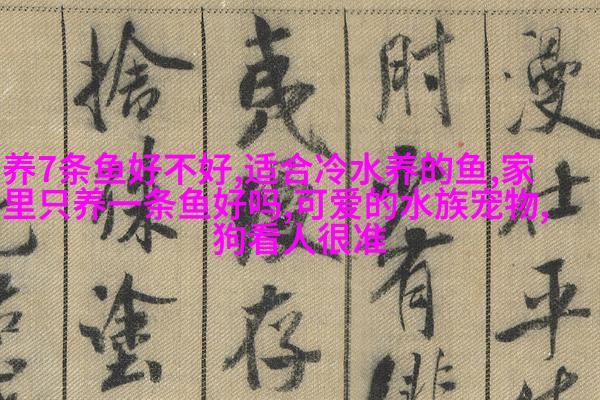 养7条鱼好不好,适合冷水养的鱼,家
里只养一条鱼好吗,可爱的水族宠物,
狗看人很准
漫仕平
肘少有俳
夷漫存
捨殊塗